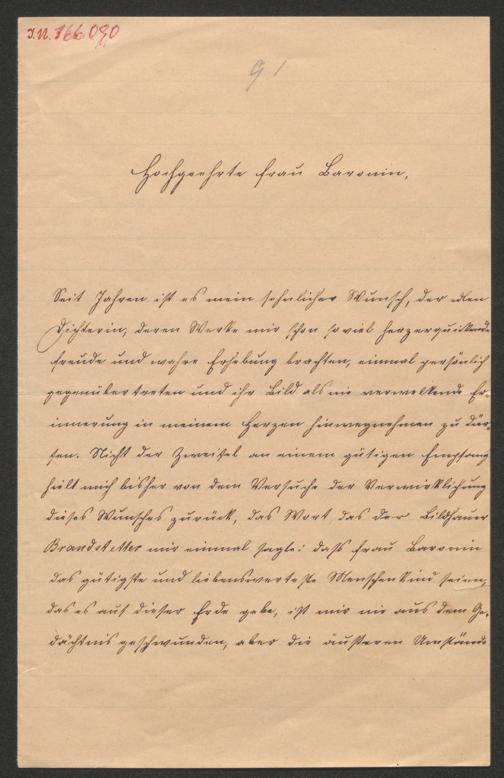 I.N. 166090
91
Hochgeehrte Frau Baronin,
Seit Jahren ist es mein sehnlicher Wunsch, der edlen
Dichterin, deren Werke mir schon so viel herzerquickende
Freude und wahre Erhebung brachten, einmal persönlich
gegenübertreten und ihr Bild als nie verwelkende Er-
innerung in meinem Herzen hinwegnehmen zu dür-
fen. Nicht der Zweifel an einem gütigen Empfang
hielt mich bisher von dem Versuche der Verwirklichung
dieses Wunsches zurück, das Wort, das der Bildhauer
Brandstetter mir einmal sagte: daß Frau Baronin
das gütigste und liebenswerteste Menschenkind seien,
das es auf dieser Erde gebe, ist mir nie aus dem Ge-
dächtnis geschwunden, aber die äußeren Umstände